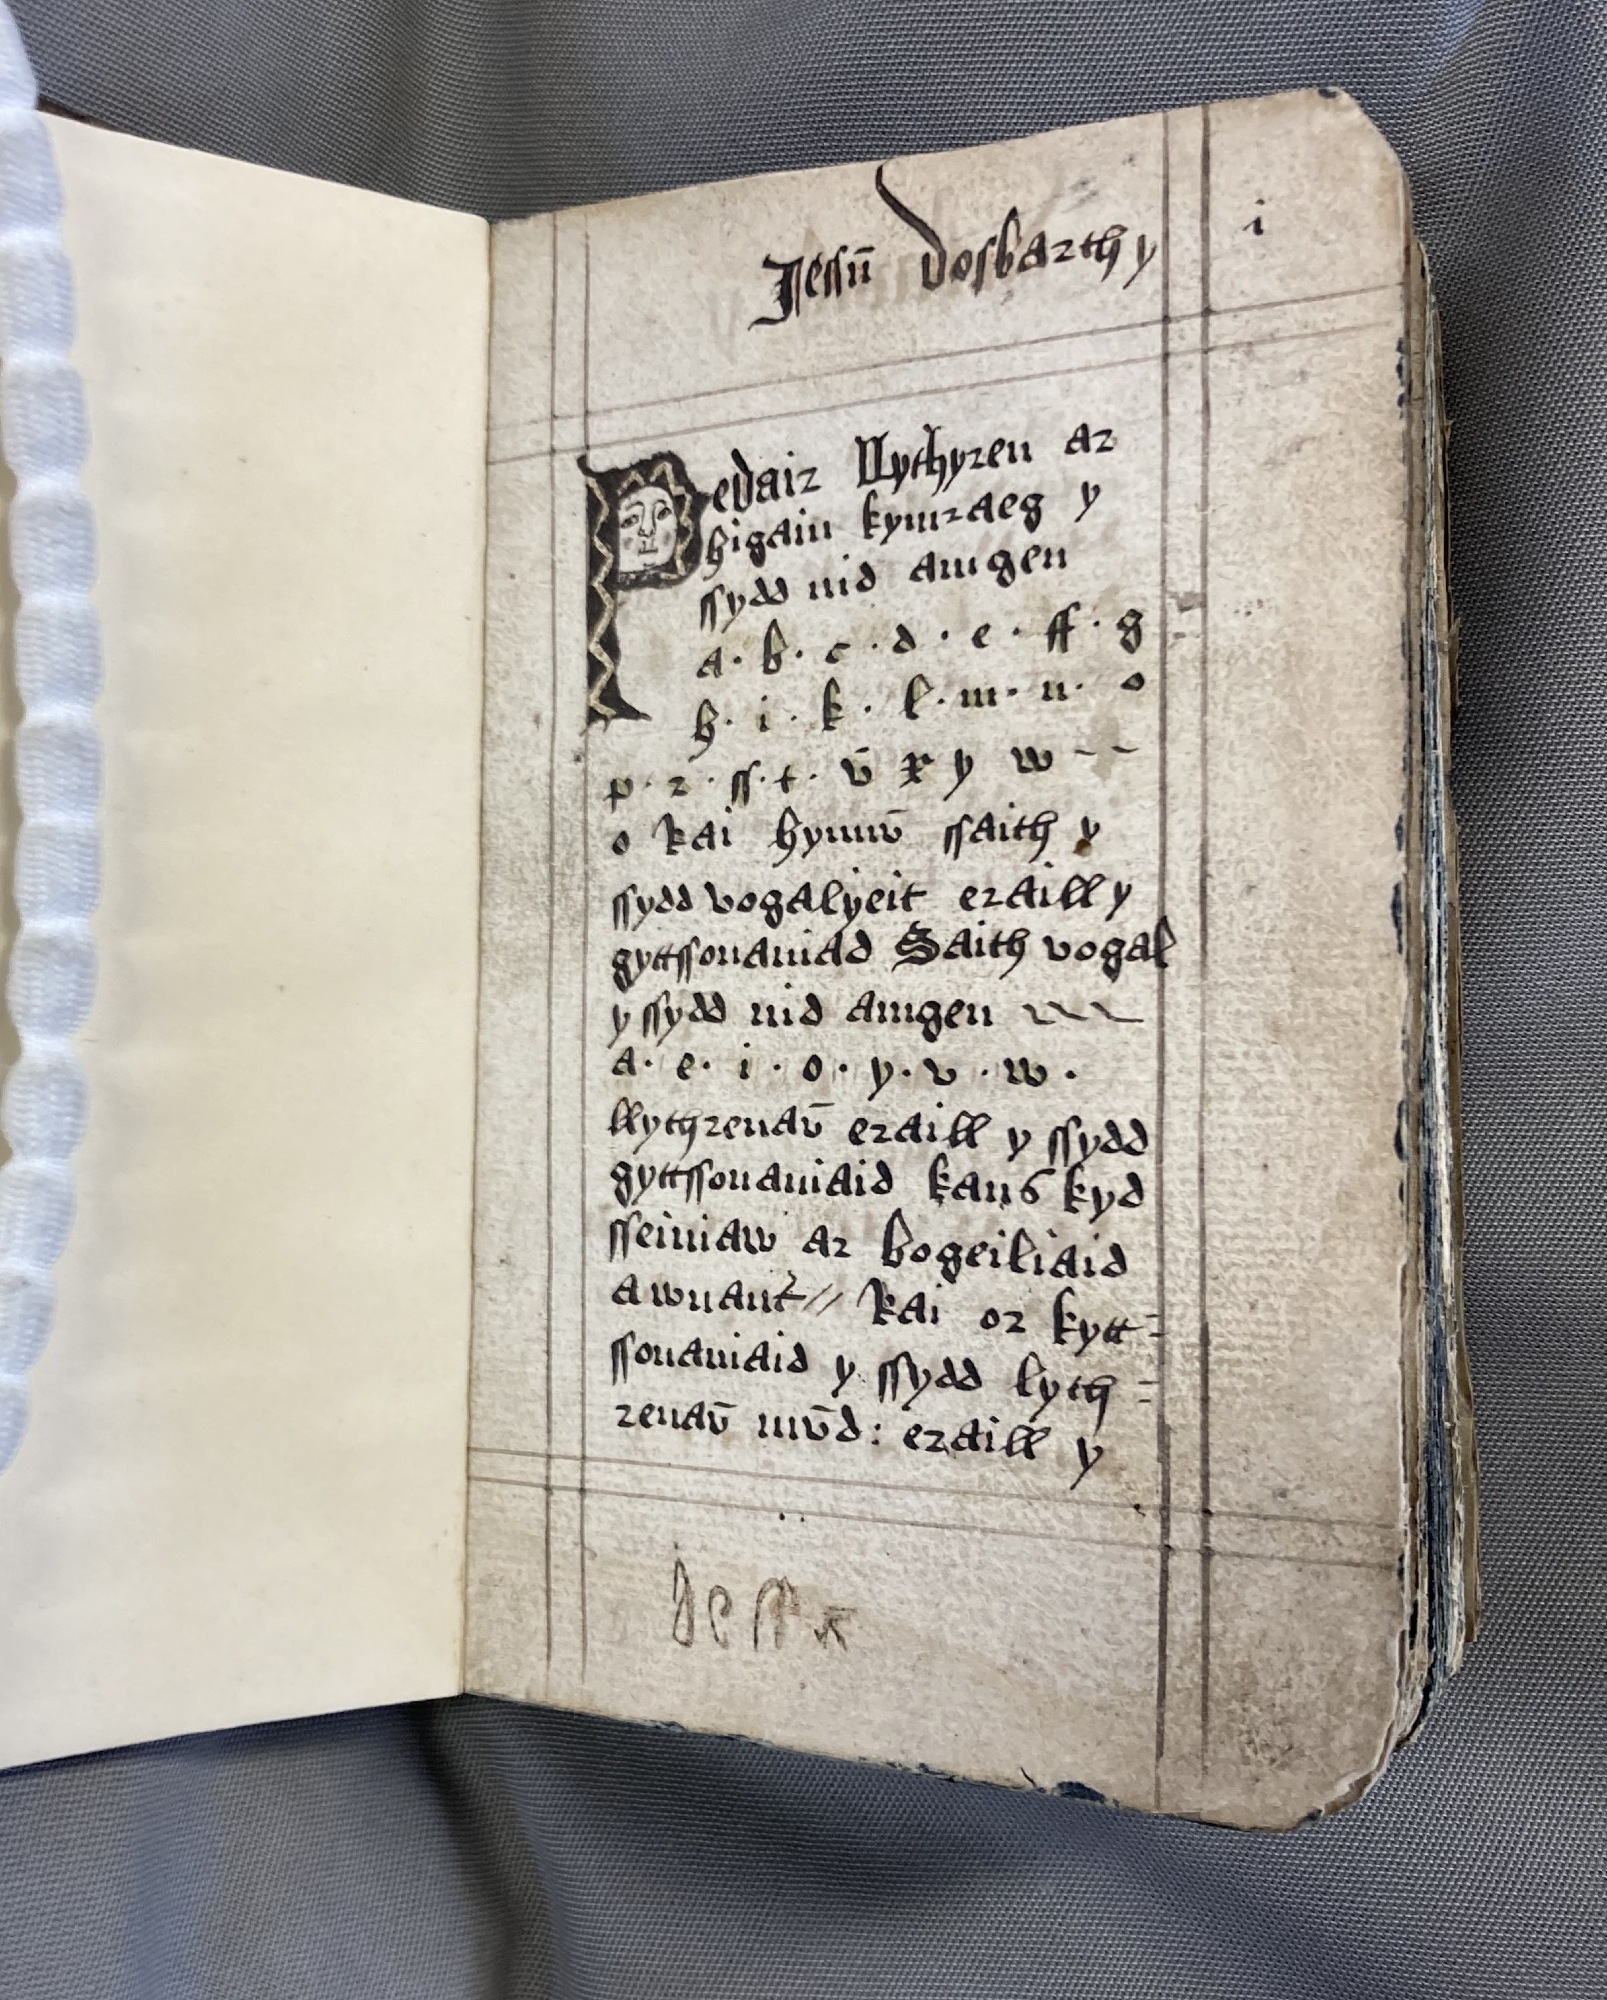 Jessu dosbarth y
i
Pedair llythyren ar
higain kymraeg y
ssydd nid amgen
a · b · c · d · e · ff · g
h · i · k · l · m · n · o
p · r · ss · t · v̄ x y w
o kai hynnv̄ ssaith y
ssydd vogalyeit eraill y
gyttssonaniad Saith vogal
y ssydd nid amgen
a · e · i · o · y · v · w ·
llythrenav̄ eraill y ssydd
gyttssonaniaid kans kyd
sseiniaw ar bogeiliaid
a wnant // kai or kytt=
ssonaniaid y ssydd lyth=
renav̄ mv̄d: eraill y